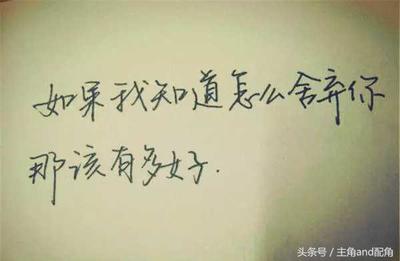 如果我知道怎么舍弃你
那该有多好.
头条号／主角and配角